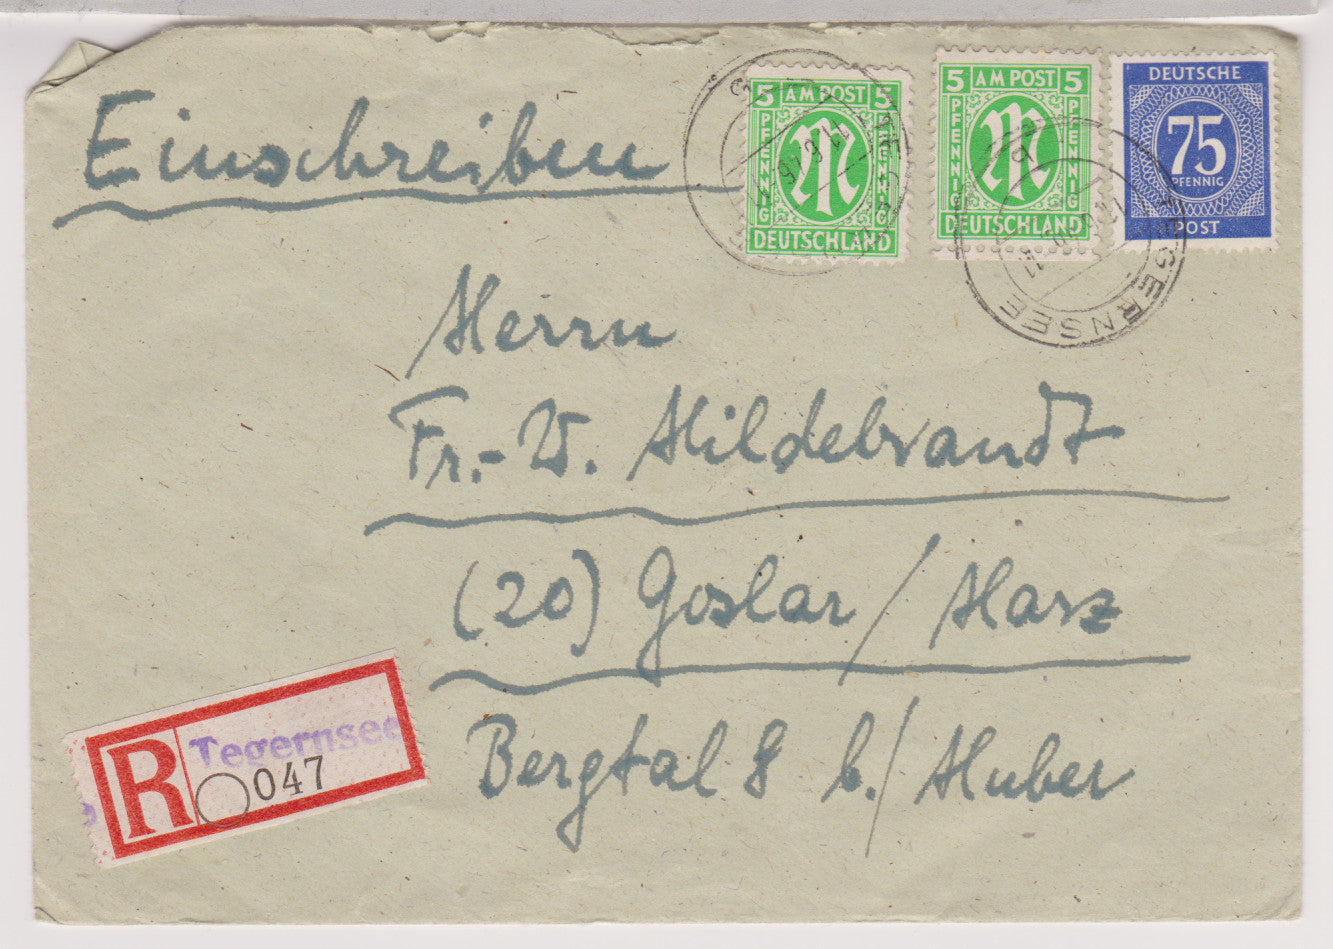 Einschreiben
5 AM POST 5
PFENNIG
PFENNIG
M
DEUTSCHLAND
5 AM POST 5
PFENNIG
PFENNIG
M
DEUTSCHLAND
DEUTSCHE
75
PFENNIG
POST
TEGERNSEE
Herrn
Fr.-W. Hildebrandt
(20) Goslar / Harz
Bergtal 8 b./Huber
R
Tegernsee
047